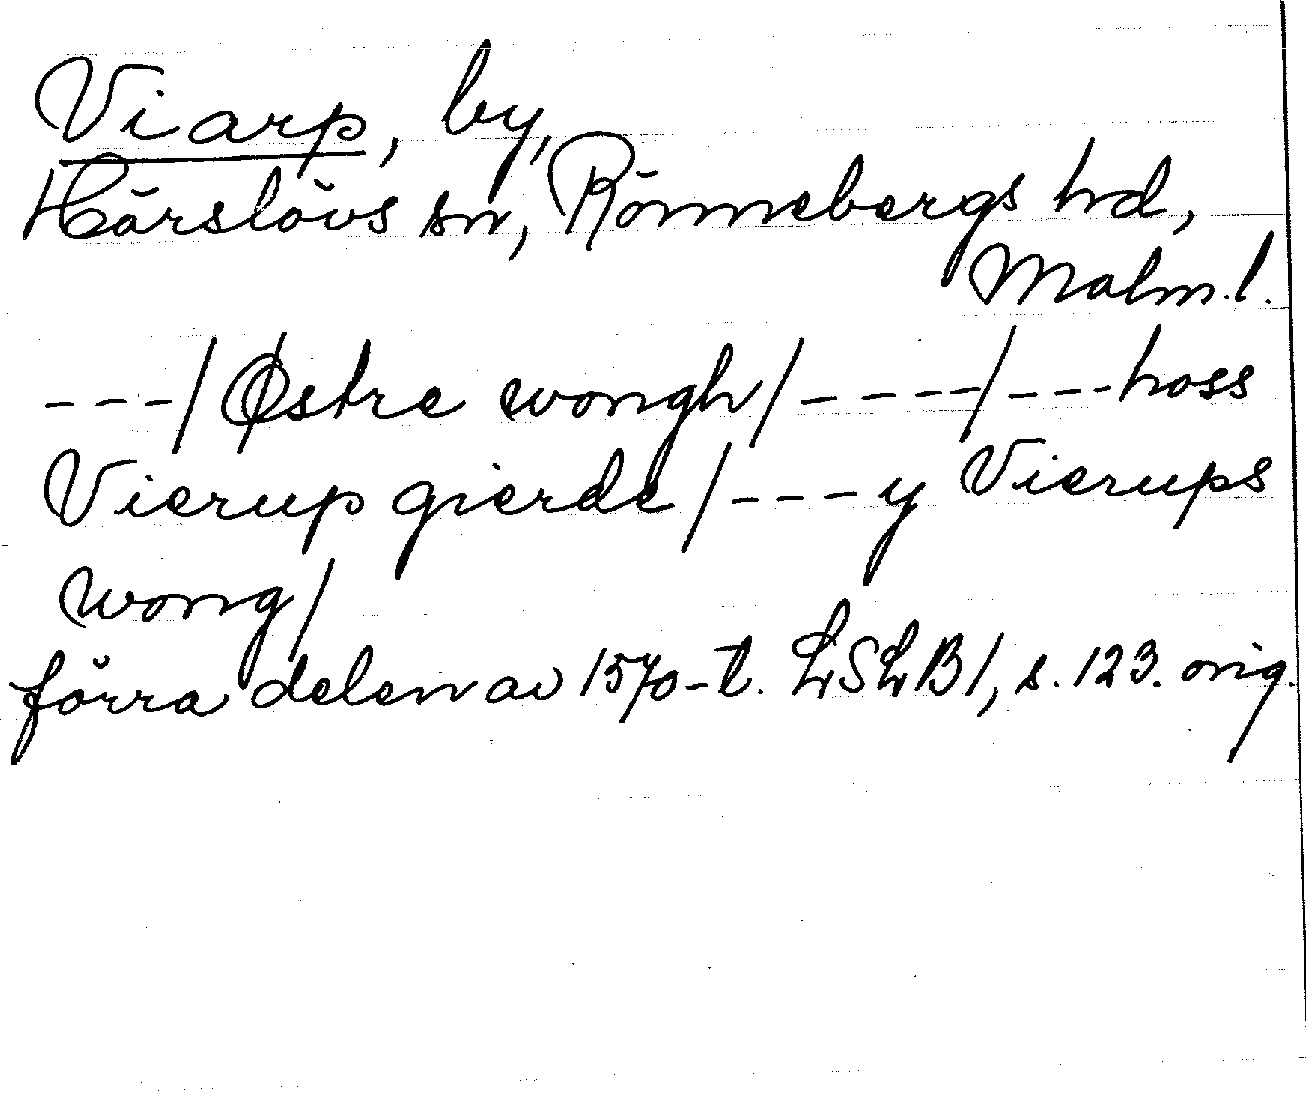 Viarp, by,
Härslövs sn, Rönnebergs hd,
Malm.l.
---/Østre wongh/----/---hoss
Vierup gierde/---y Vierups
wong/
förra delen av 1570-t. LSLB1, s. 123. orig.